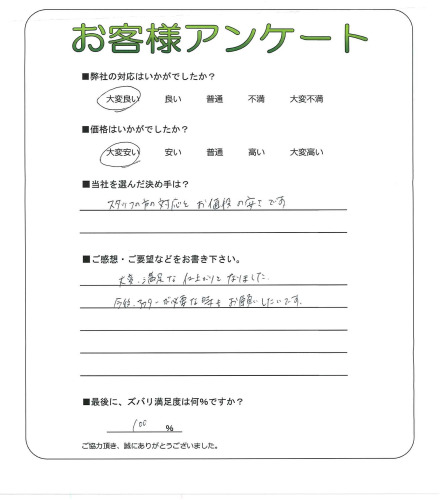 お客様アンケート
■弊社の対応はいかがでしたか？
大変良い 良い 普通 不満 大変不満
■価格はいかがでしたか？
大変安い 安い 普通 高い 大変高い
■当社を選んだ決め手は？
スタッフの方の対応と お価格の安さです
■ご感想・ご要望などをお書き下さい。
大変、満足な仕上がりとなりました。
今後、アフターが必要な時も お願いしたいです。
■最後に、ズバリ満足度は何％ですか？
100 ％
ご協力頂き、誠にありがとうございました。